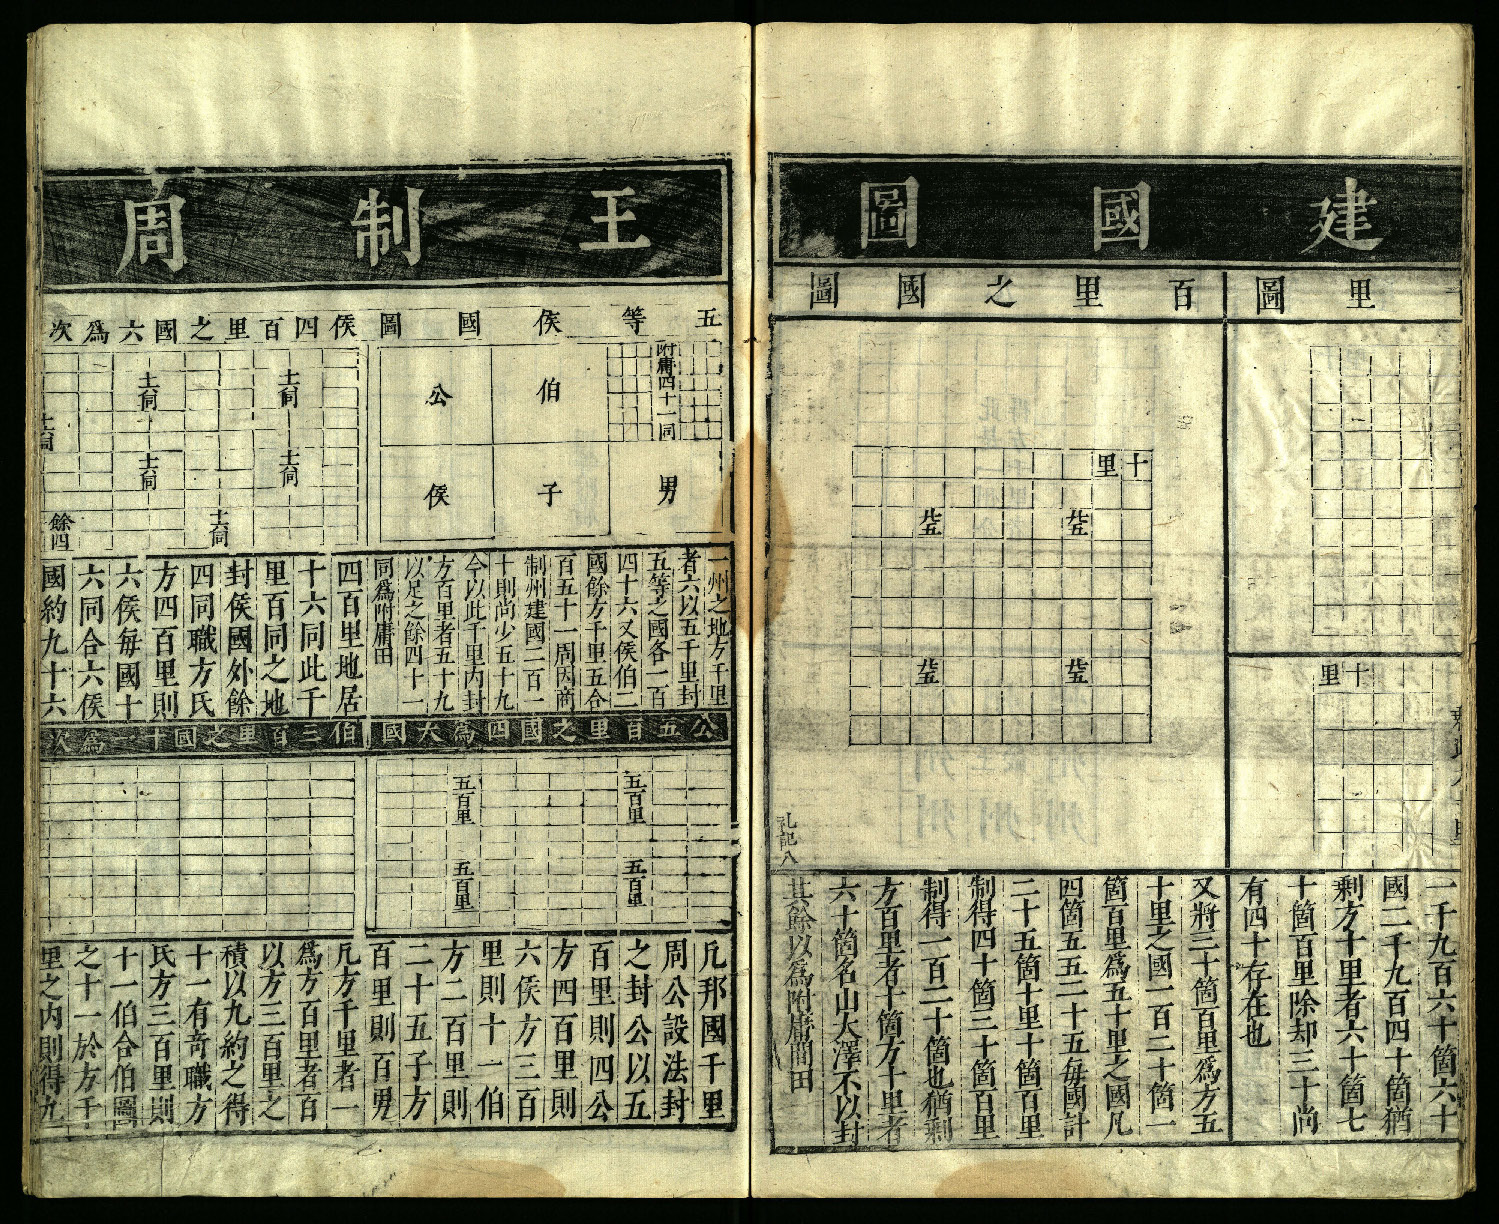 建國圖
里圖
百里之國圖
十里
廿五
廿五
廿五
廿五
十里
一千九百六十箇六十
國二千九百四十箇猶
剩方十里者六十箇七
十箇百里除却三十尚
有四十存在也
又將三十箇百里爲方五
十里之國一百二十箇一
箇百里爲五十里之國凡
四箇五五二十五每國計
二十五箇十里十箇百里
制得四十箇三十箇百里
制得一百二十箇也猶剩
方百里者十箇方十里者
六十箇名山大澤不以封
其餘以爲附庸間田
礼記八
王制周
五等侯國圖
附庸四十一同
伯
公
男
子
侯
侯四百里之國六爲次
十六同
十六同
十六同
十六同
十六同
十六同
餘四
一州之地方千里
者六以五千里封
五等之國各一百
四十六又侯伯二
國餘方千里五合
百五十一周因商
制州建國二百一
十則尚少五十九
今以此千里内封
方百里者五十九
以足之餘四十一
同爲附庸田
四百里地居
十六同此千
里百同之地
封侯國外餘
四同職方氏
方四百里則
六侯每國十
六同合六侯
國約九十六
公五百里之國四爲大國
五百里
五百里
五百里
五百里
伯三百里之國十一爲次
凡邦國千里
周公設法封
之封公以五
百里則四公
方四百里則
六侯方三百
里則十一伯
方二百里則
二十五子方
百里則百男
凡方千里者一
爲方百里者百
以方三百里之
積以九約之得
十一有奇職方
氏方三百里則
十一伯合伯圖
之十一於方千
里之内則得九